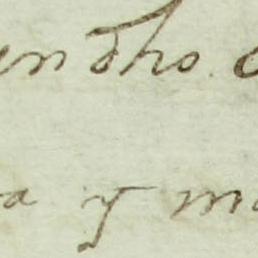 en dho.
a y m